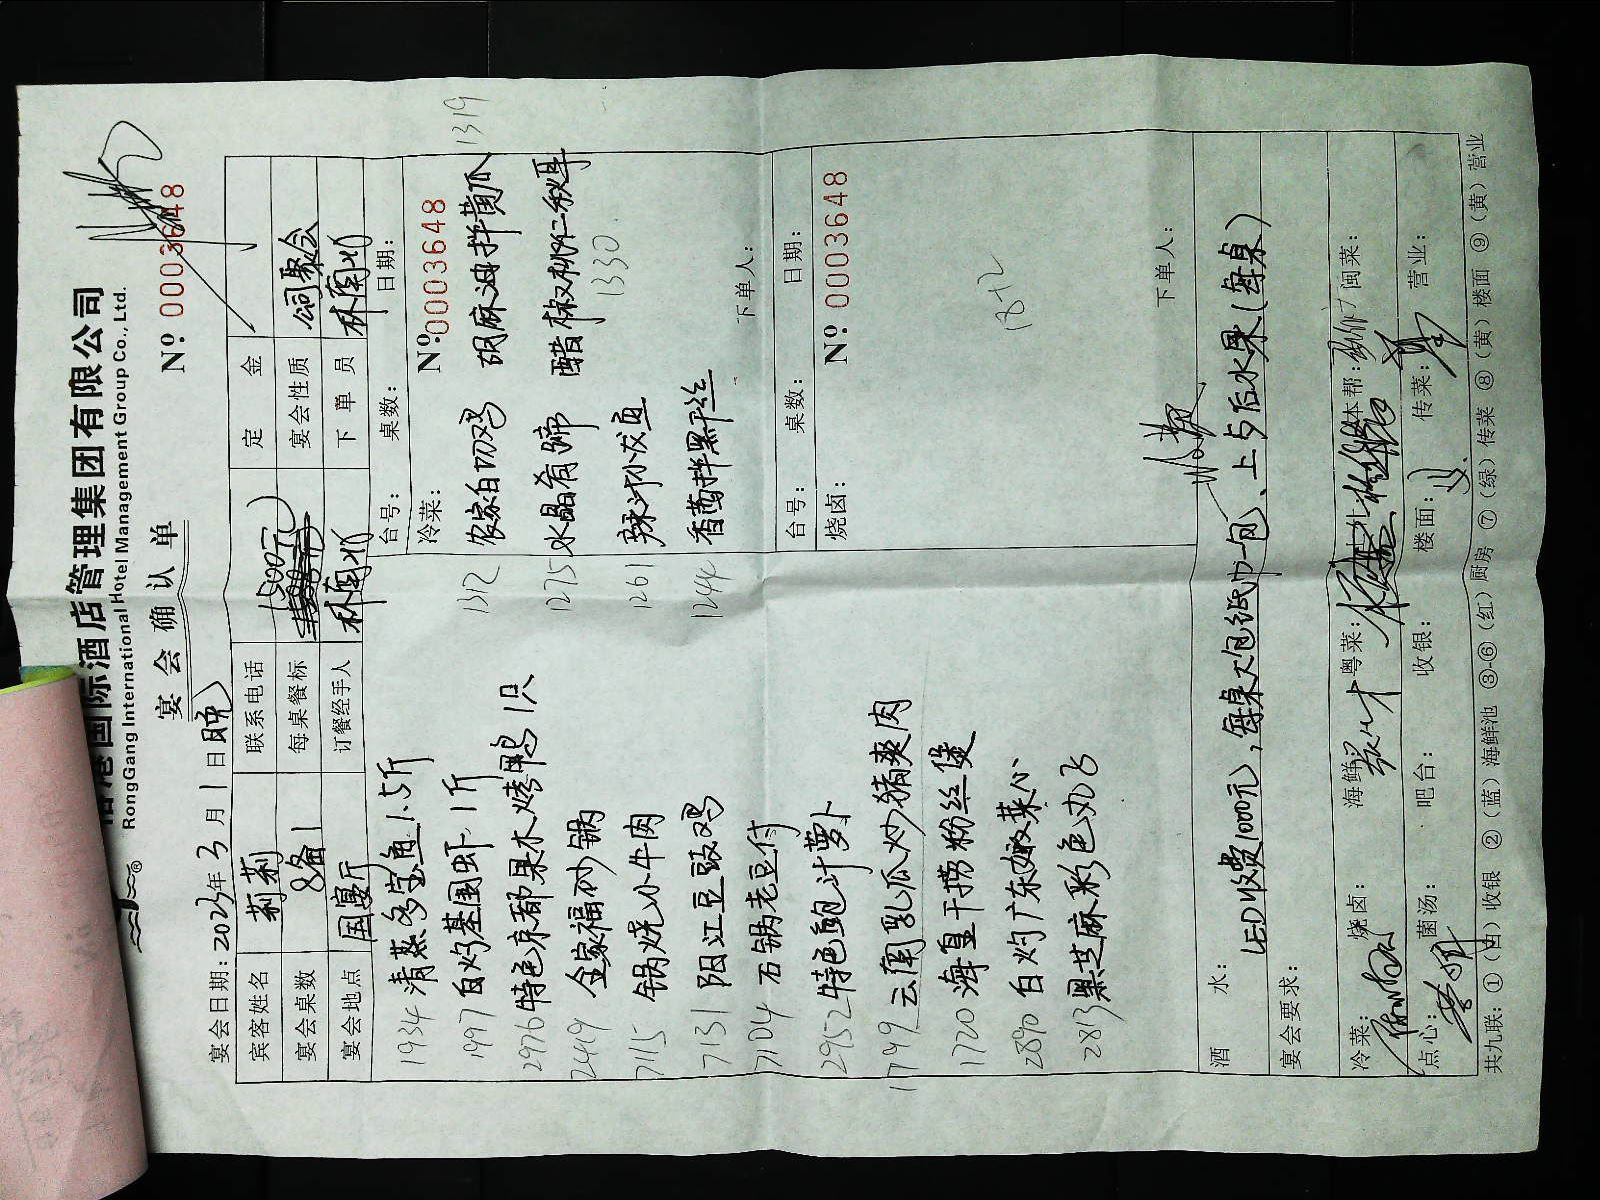 港国际酒店管理集团有限公司
RongGang International Hotel Management Group Co., Ltd.
宴会确认单
Nº 0003648
宴会日期:2025年3月1日晚
宾客姓名 莉莉 联系电话 定金
宴会桌数 8备1 每桌餐标 1500元 宴会性质 公司聚会
宴会地点 国宴厅 订餐经手人 林南北 下单员 林南北
1934 清蒸多宝鱼1.5斤
1997 白灼基围虾1斤
2976 特色京都果木烤鸭1只
2419 全家福砂锅
7115 锅烧小牛肉
7131 阳江豆豉鸡
7104 石锅老豆付
2952 特色鲍汁萝卜
1799 云南乳瓜炒猪爽肉
1720 海皇干捞粉丝煲
2890 白灼广东嫩菜心
2813 黑芝麻彩色丸子
台号: 桌数: 日期:
冷菜: Nº 0003648
1312 农家白切鸡 胡麻油拌黄瓜 1319
1275 水晶肴蹄 醋椒桃仁秋耳
1330
1261 辣汁小发鱼
1244 香菌拌黑干丝
下单人:
台号: 桌数: 日期:
烧卤: Nº 0003648
下单人:
酒水:
LED收费1000元, 每桌大包纸巾一包、上与后水果(每桌)
宴会要求:
冷菜: 烧卤: 海鲜: 粤菜: 本帮: 闽菜:
点心: 菌汤: 吧台: 收银: 楼面: 传菜: 营业:
共九联: ①(白)收银 ②(蓝)海鲜池 ③-⑥(红)厨房 ⑦(绿)传菜 ⑧(黄)楼面 ⑨(黄)营业